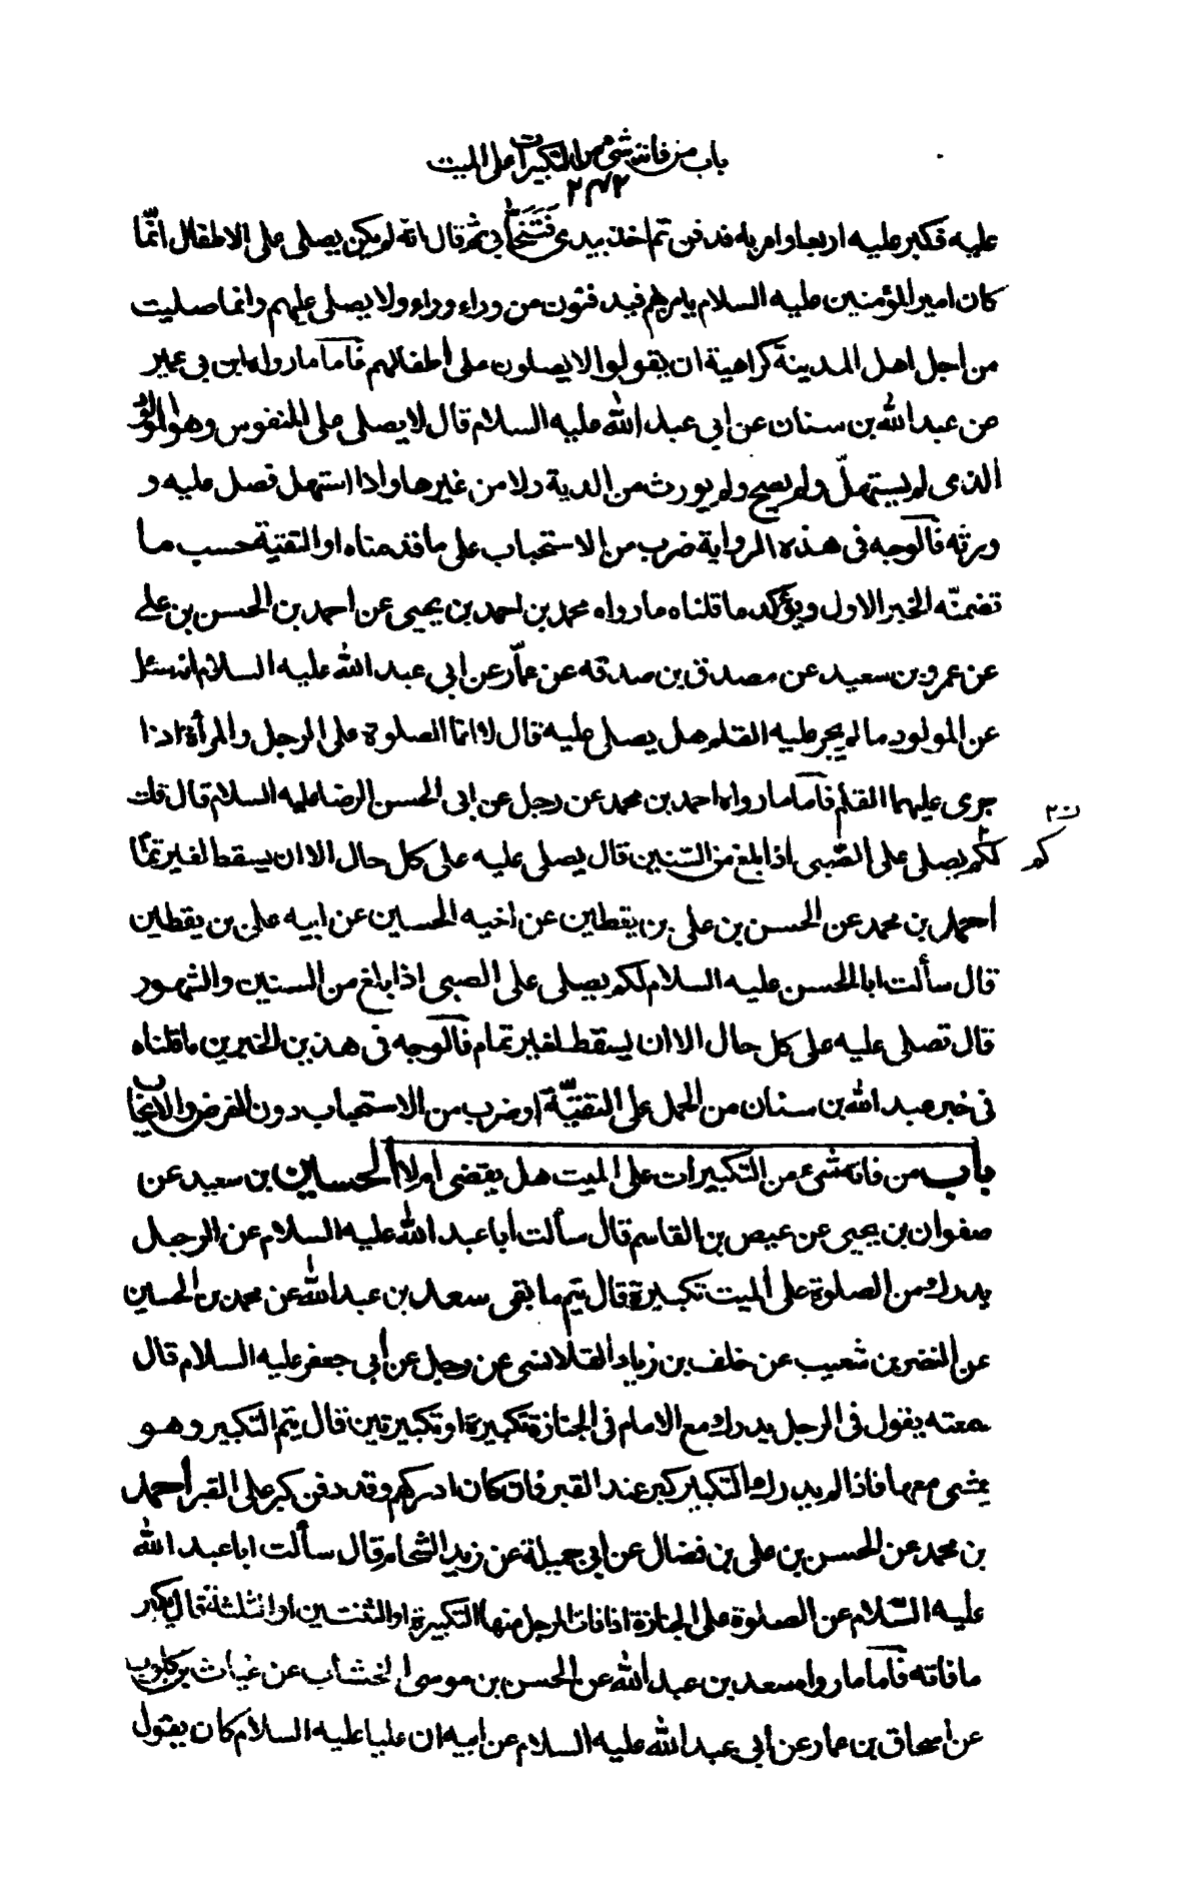 باب من فاته شئ من التكبيرات على الميت
۲۴۲
عليه فكبر عليه اربعا وامر به فدفن ثم اخذ بيدى فتنحى بى ثم قال انه لم يكن يصلى على الاطفال انّما
كان امير المؤمنين عليه السلام يامر بهم فيدفنون من وراء وراء ولا يصلى عليهم وانما صليت
من اجل اهل المدينة كراهية ان يقولوا لا يصلون على اطفالهم فاما ما رواه ابن ابى عمير
عن عبد الله بن سنان عن ابى عبد الله عليه السلام قال لا يصلى على المنفوس وهو المولود
الذى لم يستهلّ ولم يصح ولم يورث من الدية ولا من غيرها واذا استهل فصل عليه و
ورثه فالوجه فى هذه الرواية ضرب من الاستحباب على ما قدمناه او التقيّة حسب ما
تضمنّه الخبر الاول ويؤكد ما قلناه ما رواه محمد بن احمد بن يحيى عن احمد بن الحسن بن على
عن عمرو بن سعيد عن مصدق بن صدقه عن عمّار عن ابى عبد الله عليه السلام انه سئل
عن المولود ما لم يجر عليه القلم هل يصلى عليه قال لا انما الصلوة على الرجل والمرأة اذا
جرى عليهما القلم فاما ما رواه احمد بن محمد عن رجل عن ابى الحسن الرضا عليه السلام قال قلت
لكم يصلى على الصّبى اذا بلغ من السّنين قال يصلى عليه على كل حال الا ان يسقط لغير تمام
كم
احمد بن محمد عن الحسن بن على بن يقطين عن اخيه الحسين عن ابيه على بن يقطين
قال سألت ابا الحسن عليه السلام لكم يصلى على الصبى اذا بلغ من السنين والشهور
قال تصلى عليه على كل حال الا ان يسقط لغير تمام فالوجه فى هذين الخبرين ما قلناه
فى خبر عبد الله بن سنان من الحمل على التقيّة او ضرب من الاستحباب دون الفرض والايجاب
باب من فاته شئ من التكبيرات على الميت هل يقضى ام لا الحسين بن سعيد عن
صفوان بن يحيى عن عيص بن القاسم قال سألت أبا عبد الله عليه السلام عن الرجل
يدرك من الصلوة على الميت تكبيرة قال يتم ما بقى سعد بن عبد الله عن محمد بن الحسين
عن النضر بن شعيب عن خلف بن زياد القلانسى عن رجل عن ابى جعفر عليه السلام قال
سمعته يقول فى الرجل يدرك مع الامام فى الجنازة تكبيرة او تكبيرتين قال يتم التكبير وهو
يمشى معها فاذا لم يدرك التكبير كبر عند القبر فان كان ادركهم وقد دفن كبر على القبر احمد
بن محمد عن الحسن بن على بن فضال عن ابى جميلة عن زيد الشحام قال سألت ابا عبد الله
عليه السّلام عن الصلوة على الجنازة اذا فات الرجل منها التكبيرة او الثنتين او الثلثة قال يكبر
ما فاته فاما ما رواه سعد بن عبد الله عن الحسن بن موسى الخشاب عن غياث بن كلوب
عن اسحاق بن عمار عن ابى عبد الله عليه السلام عن ابيه ان عليا عليه السلام كان يقول